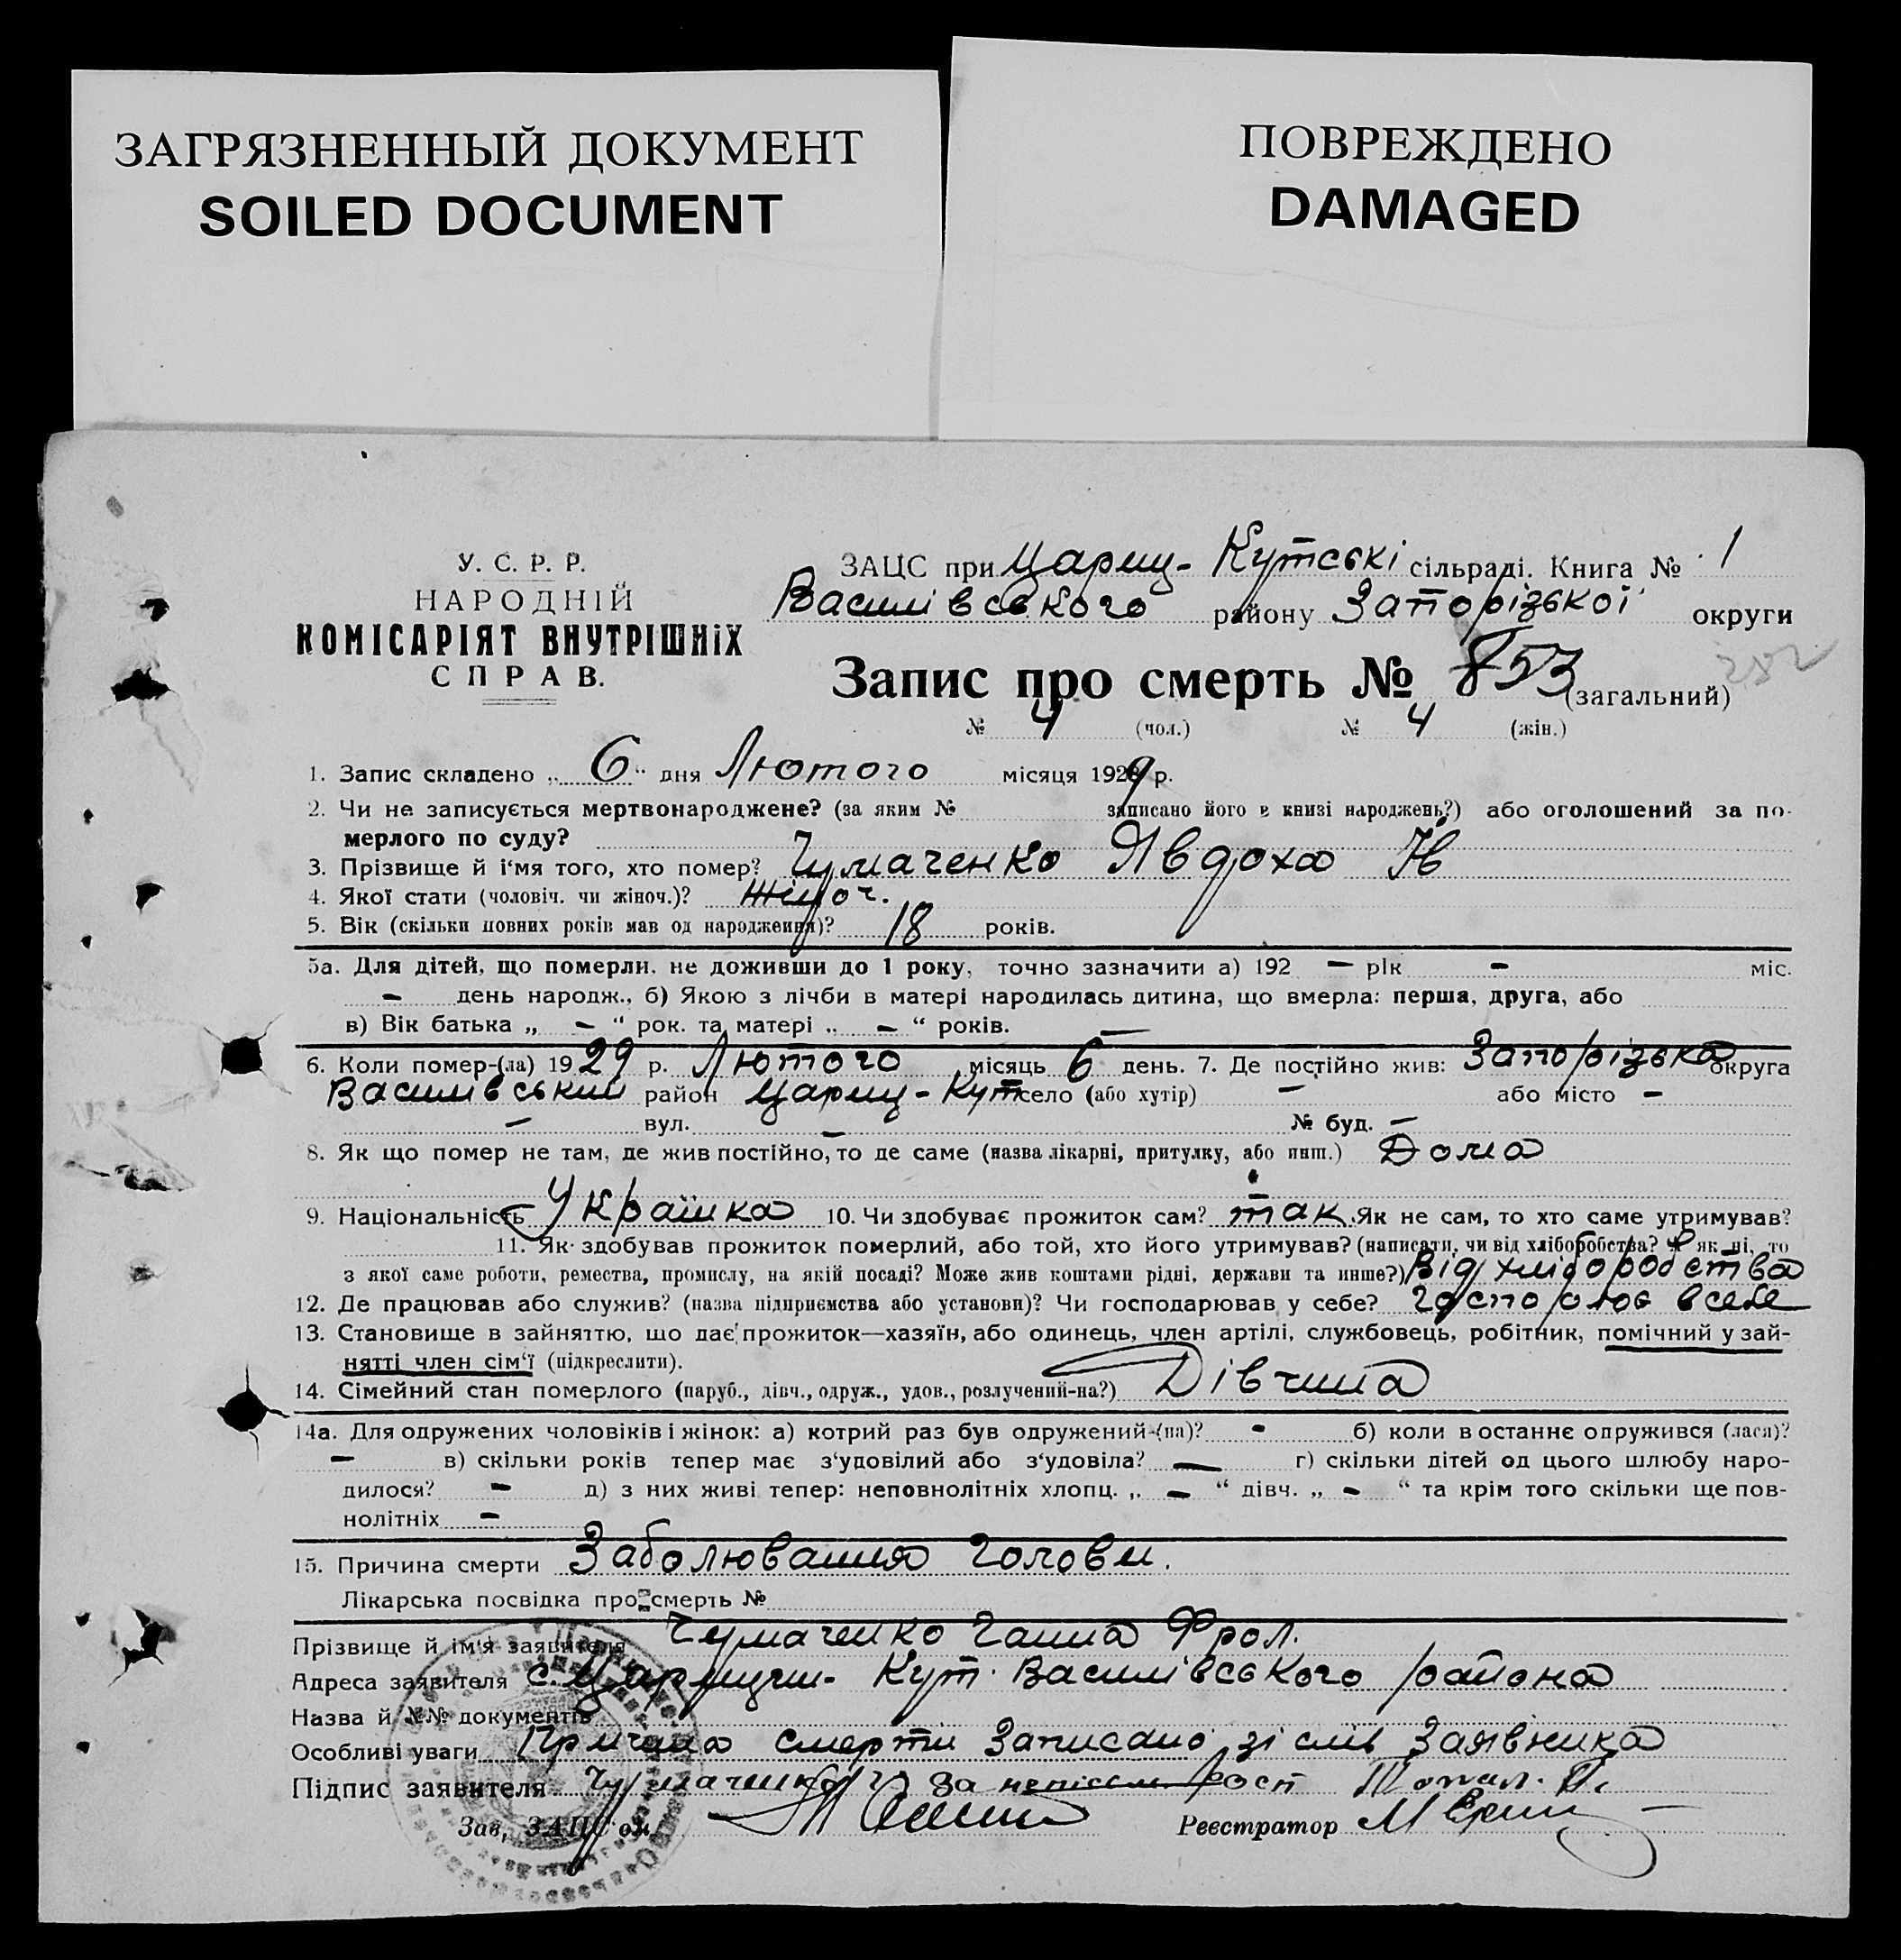 ЗАГРЯЗНЕННЫЙ ДОКУМЕНТ
SOILED DOCUMENT
ПОВРЕЖДЕНО
DAMAGED
У. С. Р. Р.
НАРОДНІЙ
КОМІСАРІЯТ ВНУТРІШНІХ
СПРАВ.
ЗАЦС при Цариц-Кутські сільраді. Книга № 1
Василівського району Запорізької округи
282
Запис про смерть № 853 (загальний)
№ 4 (чол.) № 4 (жін.)
1. Запис складено „ 6 “ дня Лютого місяця 1929 р.
2. Чи не записується мертвонароджене? (за яким № записано його в книзі народжень?) або оголошений за по-
мерлого по суду?
3. Прізвище й і‘мя того, хто помер? Чумаченко Явдоха
4. Якої стати (чоловіч. чи жіноч.)? жіноч.
5. Вік (скільки повних років мав од народження)? 18 років.
5а. Для дітей, що померли, не доживши до 1 року, точно зазначити а) 192 — рік - міс.
- день народж., б) Якою з лічби в матері народилась дитина, що вмерла: перша, друга, або
в) Вік батька „ - “ рок. та матері „ - “ років. —
6. Коли помер-(ла) 1929 р. Лютого місяць 6 день. 7. Де постійно жив: Запорізька округа
Василівський район Цариц-Кут село (або хутір) - або місто -
- вул. - № буд. -
8. Як що помер не там, де жив постійно, то де саме (назва лікарні, притулку, або инш.) Дома
9. Національність Украінка 10. Чи здобуває прожиток сам? так. Як не сам, то хто саме утримував?
11. Як здобував прожиток померлий, або той, хто його утримував? (написати, чи від хліборобства? А як ні, то
з якої саме роботи, ремества, промислу, на якій посаді? Може жив коштами рідні, держави та инше?) Від хліборобства
12. Де працював або служив? (назва підприємства або установи)? Чи господарював у себе?
13. Становище в зайняттю, що дає прожиток—хазяїн, або одинець, член артілі, службовець, робітник, помічний у зай-
нятті член сім‘ї (підкреслити).
14. Сімейний стан померлого (паруб., дівч., одруж., удов., розлучений-на?) Дівчина
14а. Для одружених чоловіків і жінок: а) котрий раз був одружений-(на)? - б) коли востаннє одружився (лася)?
- в) скільки років тепер має з‘удовілий або з‘удовіла? — г) скільки дітей од цього шлюбу наро-
дилося? - д) з них живі тепер: неповнолітніх хлопц. „ - “ дівч. „ - “ та крім того скільки ще пов-
нолітніх -
15. Причина смерти Заболювання голови.
Лікарська посвідка про смерть №
Прізвище й ім‘я заявителя Чумаченко Ганна Фрол.
Адреса заявителя с. Царицин-Кут Василівського района
Назва й №№ документів
Особливі уваги Причина смерти Записано зі слів Заявника
Підпис заявителя Чумаченко За
Зав. ЗАЦС‘ом Реєстратор